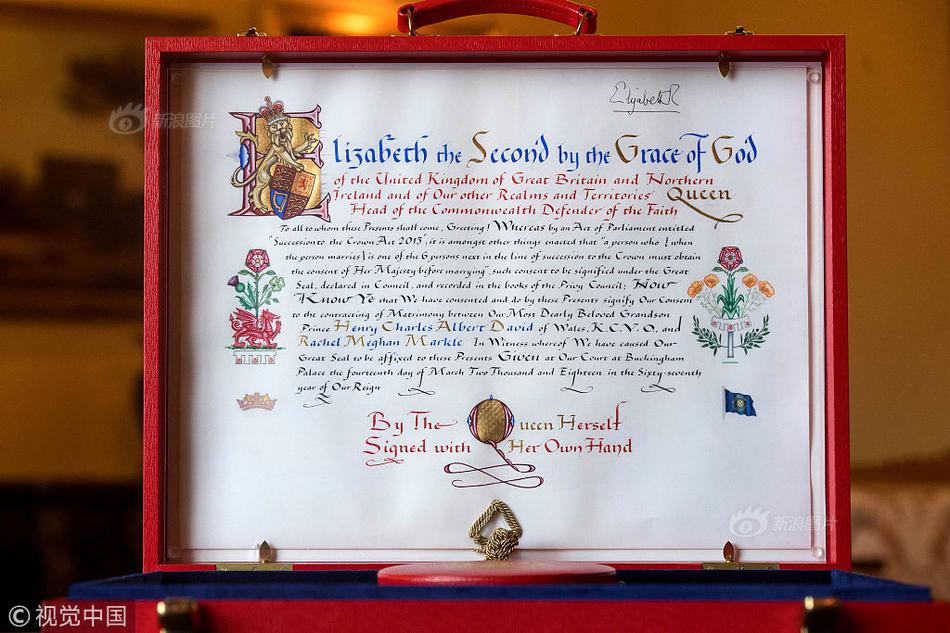 ElizabethR
Elizabeth the Second by the Grace of God
of the United Kingdom of Great Britain and Northern
Ireland and of Our other Realms and Territories Queen
Head of the Commonwealth Defender of the Faith
To all to whom these Presents shall come, Greeting! Whereas by an Act of Parliament entitled
"Succession to the Crown Act 2013", it is amongst other things enacted that "a person who (when
the person marries) is one of the 6 persons next in the line of succession to the Crown must obtain
the consent of Her Majesty before marrying", such consent to be signified under the Great
Seal, declared in Council, and recorded in the books of the Privy Council; Now
Know Ye that We have consented and do by these Presents signify Our Consent
to the contracting of Matrimony between Our Most Dearly Beloved Grandson
Prince Henry Charles Albert David of Wales, K.C.V.O, and
Rachel Meghan Markle In Witness whereof We have caused Our
Great Seal to be affixed to these Presents Given at Our Court at Buckingham
Palace the fourteenth day of March Two Thousand and Eighteen in the Sixty-seventh
year of Our Reign
By The Queen Herself
Signed with Her Own Hand
新浪图片
新浪图片
© 视觉中国